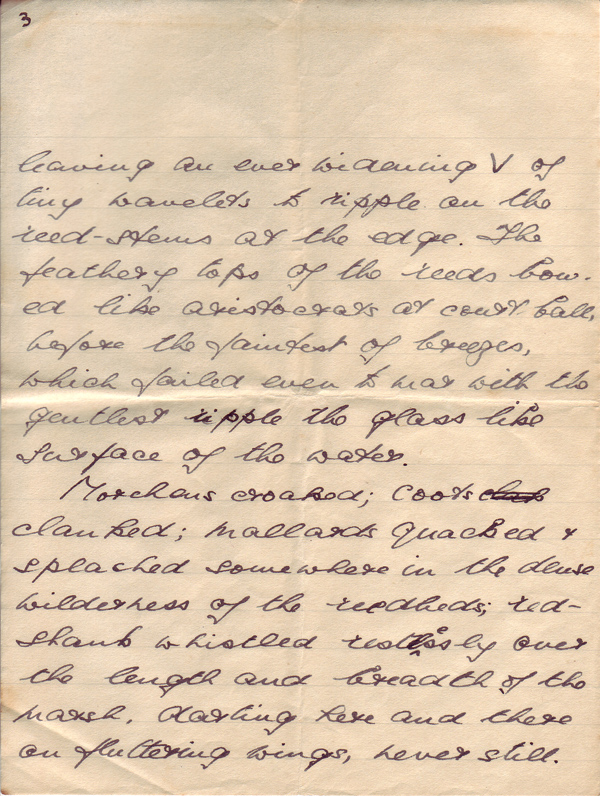 3
leaving an ever widening V of
tiny wavelets to ripple on the
reed-stems at the edge. The
feathery tops of the reeds bow-
ed like aristocrats at court ball,
before the faintest of breezes,
which failed even to mar with the
gentlest ripple the glass like
surface of the water.
Morehens croaked; coots
clanked; mallards quacked &
splached somewhere in the dense
wilderness of the reedbeds; red-
shank whistled restlessly over
the length and breadth of the
marsh, darting here and there
on fluttering wings, never still.